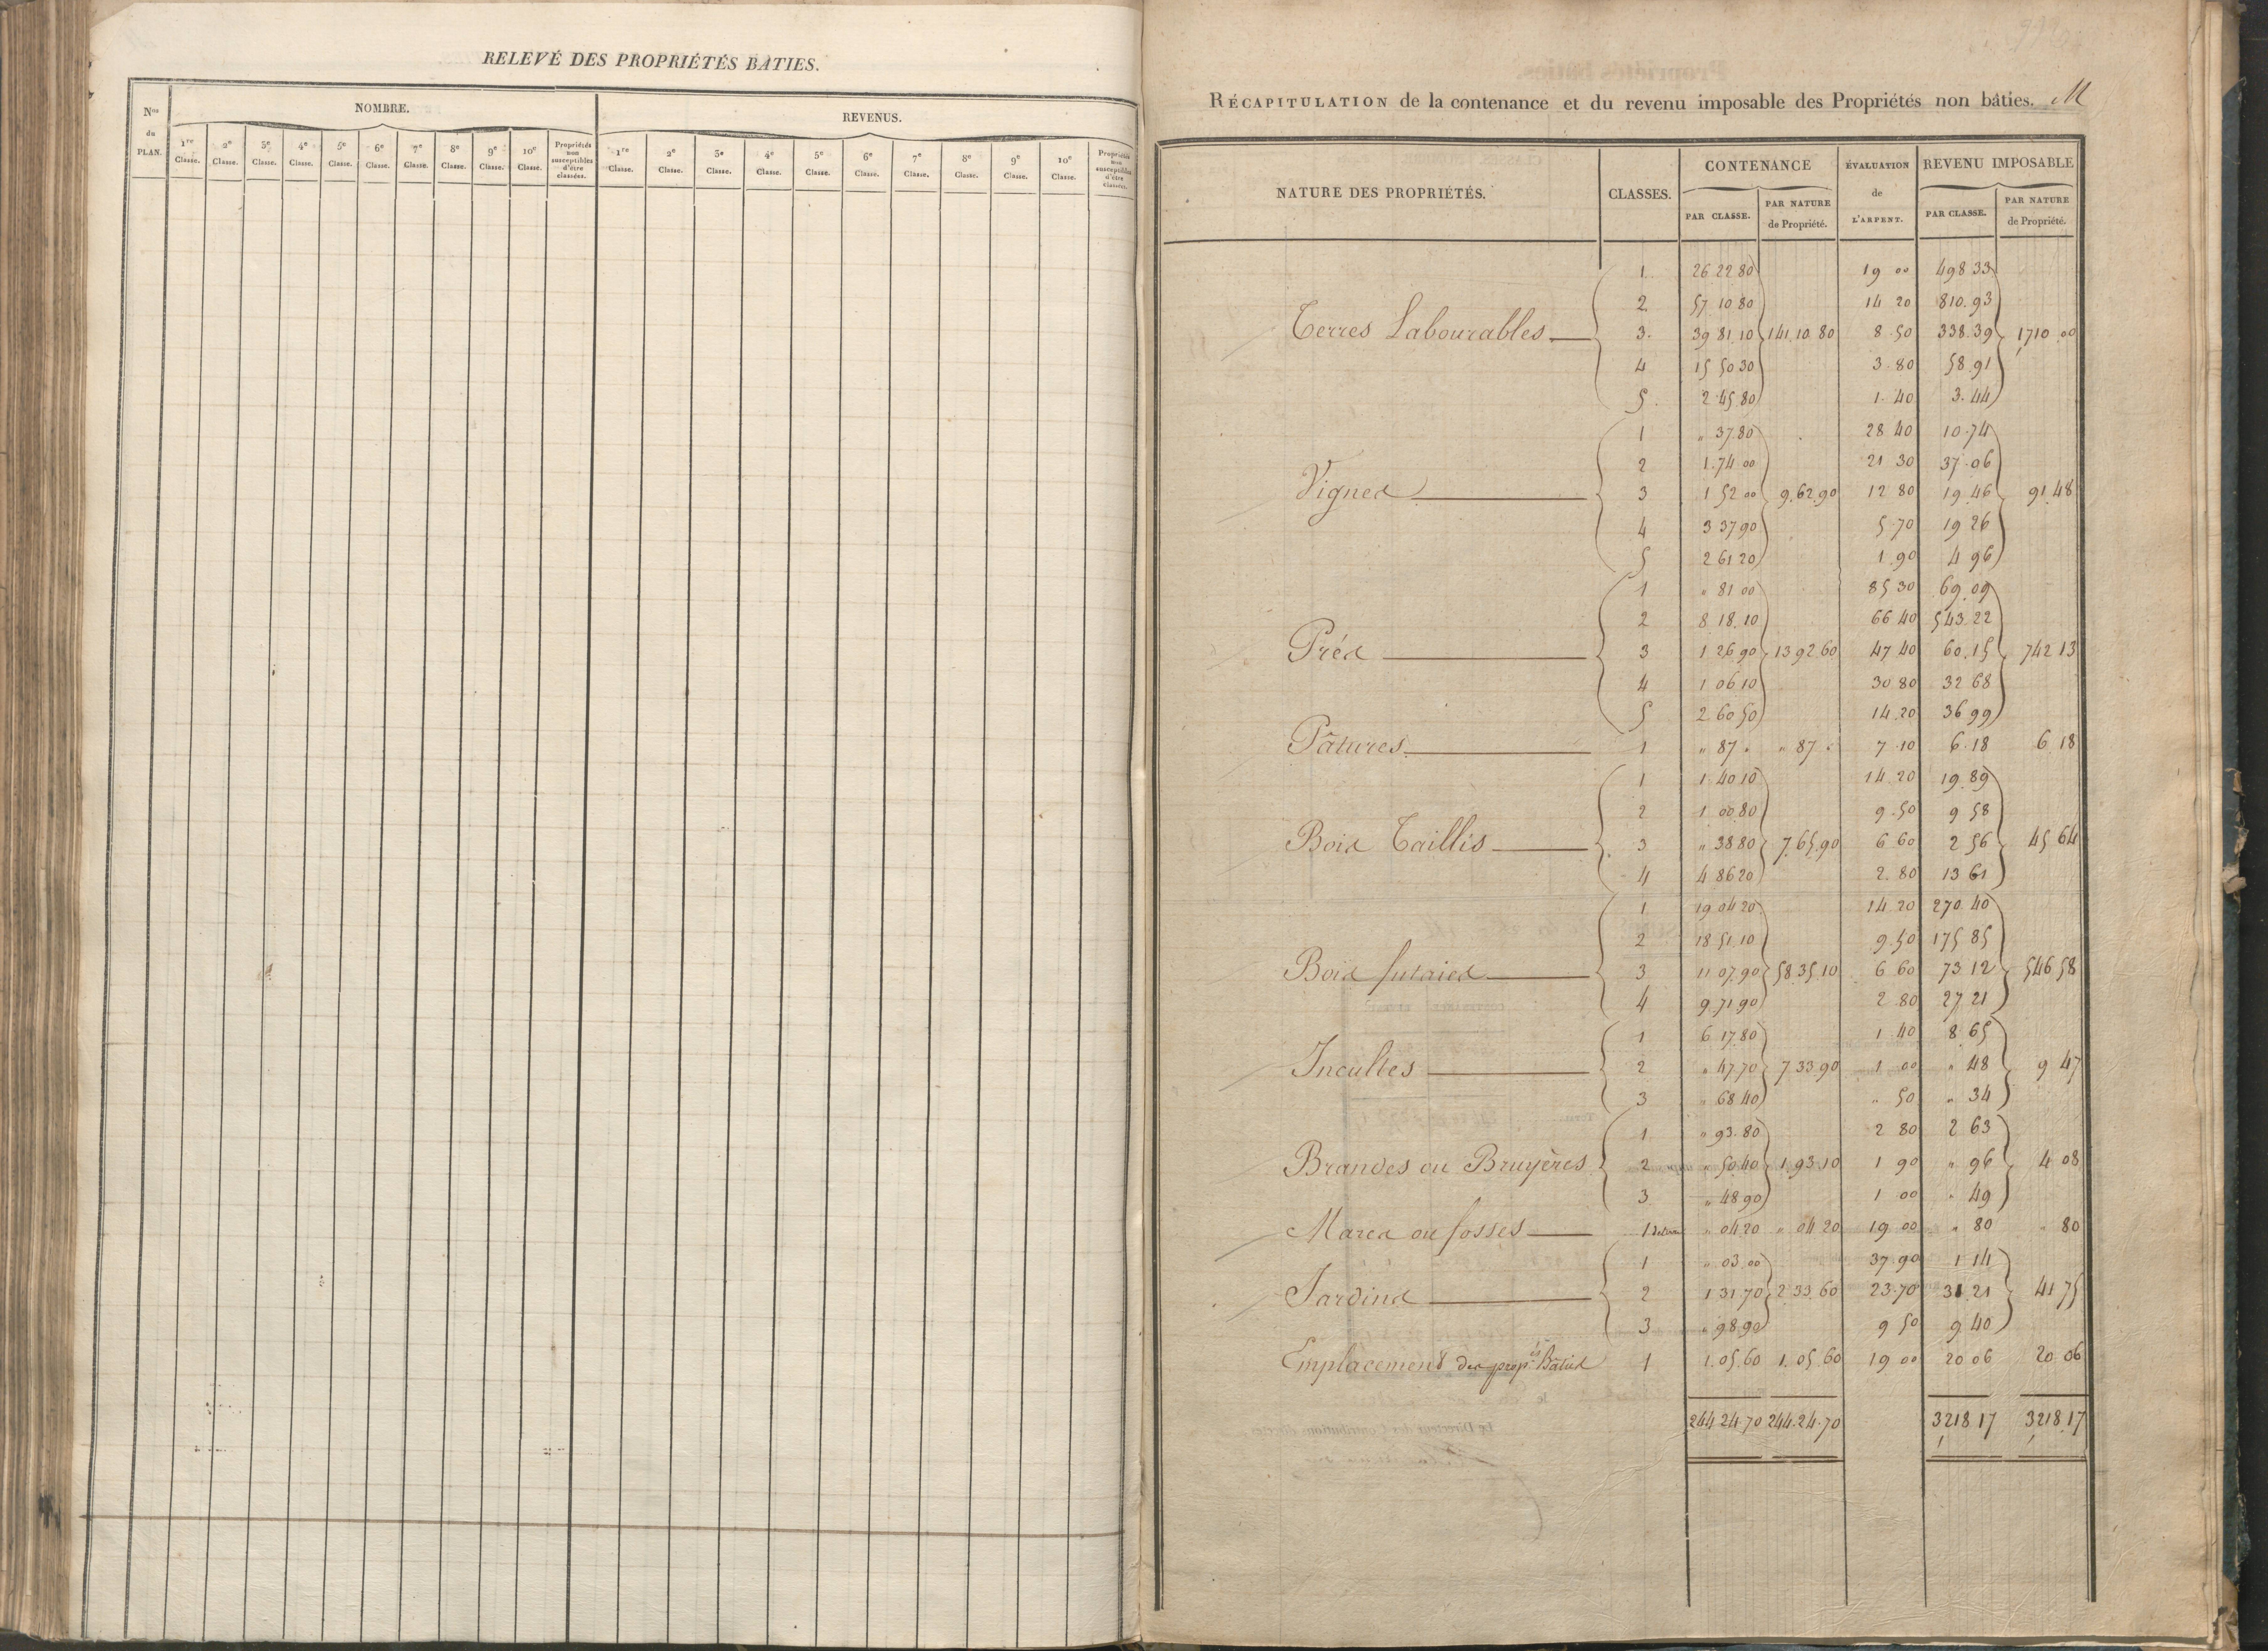 RELEVÉ DES PROPRIÉTÉS BÂTIES.
Nos du PLAN. NOMBRE. REVENUS.
1re Classe. 2e Classe. 3e Classe. 4e Classe. 5e Classe. 6e Classe. 7e Classe. 8e Classe. 9e Classe. 10e Classe. Propriétés non susceptibles d'être classées. 1re Classe. 2e Classe. 3e Classe. 4e Classe. 5e Classe. 6e Classe. 7e Classe. 8e Classe. 9e Classe. 10e Classe. Propriétés non susceptibles d'être classées.
RÉCAPITULATION de la contenance et du revenu imposable des Propriétés non bâties. M
NATURE DES PROPRIÉTÉS. CLASSES. CONTENANCE ÉVALUATION de L'ARPENT. REVENU IMPOSABLE
PAR CLASSE. PAR NATURE de Propriété. PAR CLASSE. PAR NATURE de Propriété.
1. 26 22 80 19 00 498 33
2. 57 10 80 14 20 810. 93
Terres Labourables 3. 39 81 10 141 10 80 8. 50 338. 39 1710 00
4 15 50 30 3. 80 58. 91
5. 2. 45 80 1. 40 3. 44
1 " 37 80 28 40 10. 74
2 1. 74 00 21 30 37. 06
Vignes 3 1 52 00 9. 62. 90 12 80 19. 46 91. 48
4 3 37 90 5. 70 19 26
5 2 61 20 1. 90 4 96
1 " 81 00 85 30 69. 09
2 8 18. 10 66 40 543. 22
Prés 3 1 26 90 13 92 60 47 40 60. 15 742 13
4 1 06 10 30 80 32 68
5 2 60 50 14. 20 36 99
Pâtures 1 " 87 " " 87 " 7. 10 6. 18 6 18
1 1. 40 10 14 20 19. 89
2 1 00 80 9. 50 9 58
Bois Taillis 3 " 38 80 7. 65. 90 6 60 2 56 45 64
4 4 86 20 2. 80 13 61
1 19 04 20 14. 20 270 40
2 18. 51. 10 9. 50 175 85
Bois futaies 3 11 07. 90 58. 35. 10 6 60 73. 12 546 58
4 9. 71 90 2. 80 27 21
1 6 17. 80 1 40 8. 65
Incultes 2 " 47. 70 7 33. 90 1 00 " 48 9 47
3 " 68 40 " 50 " 34
1 " 93. 80 2 80 2 63
Brandes ou Bruyères 2 " 50. 40 1. 93. 10 1 90 " 96 4 08
3 " 48 90 1 00 " 49
Mares ou fosses 1 " 04 20 " 04 20 19 00 " 80 " 80
1 " 03. 00 37. 90 1 14
Jardins 2 1 31 70 2 33. 60 23. 70 31. 21 41 75
3 " 98. 90 9 50 9 40
Emplacement des prop.és Bâties 1 1. 05. 60 1. 05. 60 19 00 20 06 20 06
244 24. 70 244. 24. 70 3218 17 3218. 17